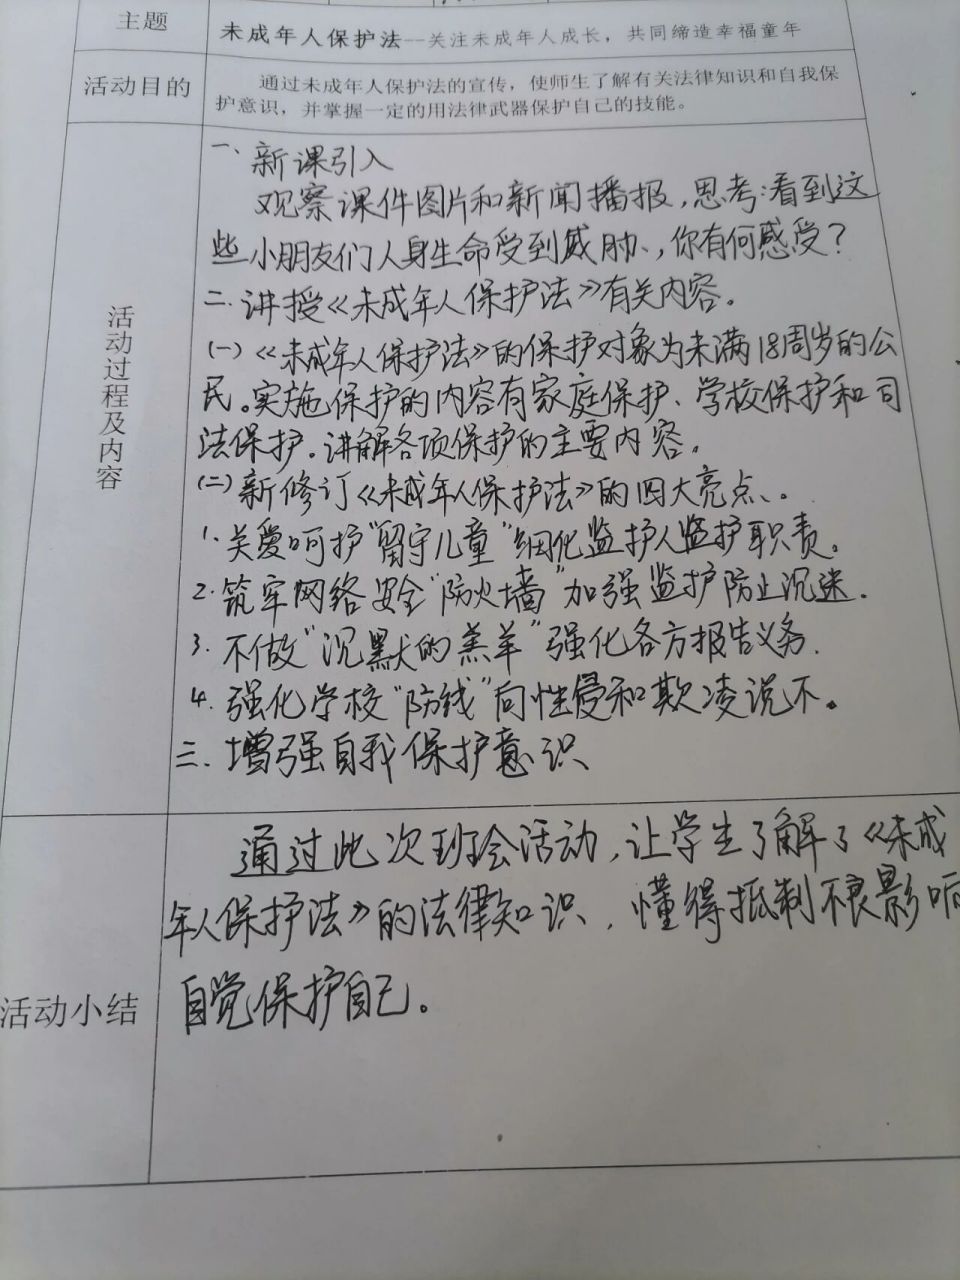 主题
未成年人保护法--关注未成年人成长，共同缔造幸福童年
活动目的
通过未成年人保护法的宣传，使师生了解有关法律知识和自我保
护意识，并掌握一定的用法律武器保护自己的技能。
活动过程及内容
一、新课引入
观察课件图片和新闻播报，思考：看到这
些小朋友们人身生命受到威胁、，你有何感受？
二.讲授《未成年人保护法》有关内容。
(一)《未成年人保护法》的保护对象为未满18周岁的公
民。实施保护的内容有家庭保护、学校保护和司
法保护。讲解各项保护的主要内容。
(二)新修订《未成年人保护法》的四大亮点、。
1.关爱呵护“留守儿童”细化监护人监护职责。
2.筑牢网络安全“防火墙”加强监护防止沉迷.
3.不做“沉默的羔羊”强化各方报告义务.
4.强化学校“防线”向性侵和欺凌说不。
三.增强自我保护意识
活动小结
通过此次班会活动,让学生了解了《未成
年人保护法》的法律知识，懂得抵制不良影响
自觉保护自己。